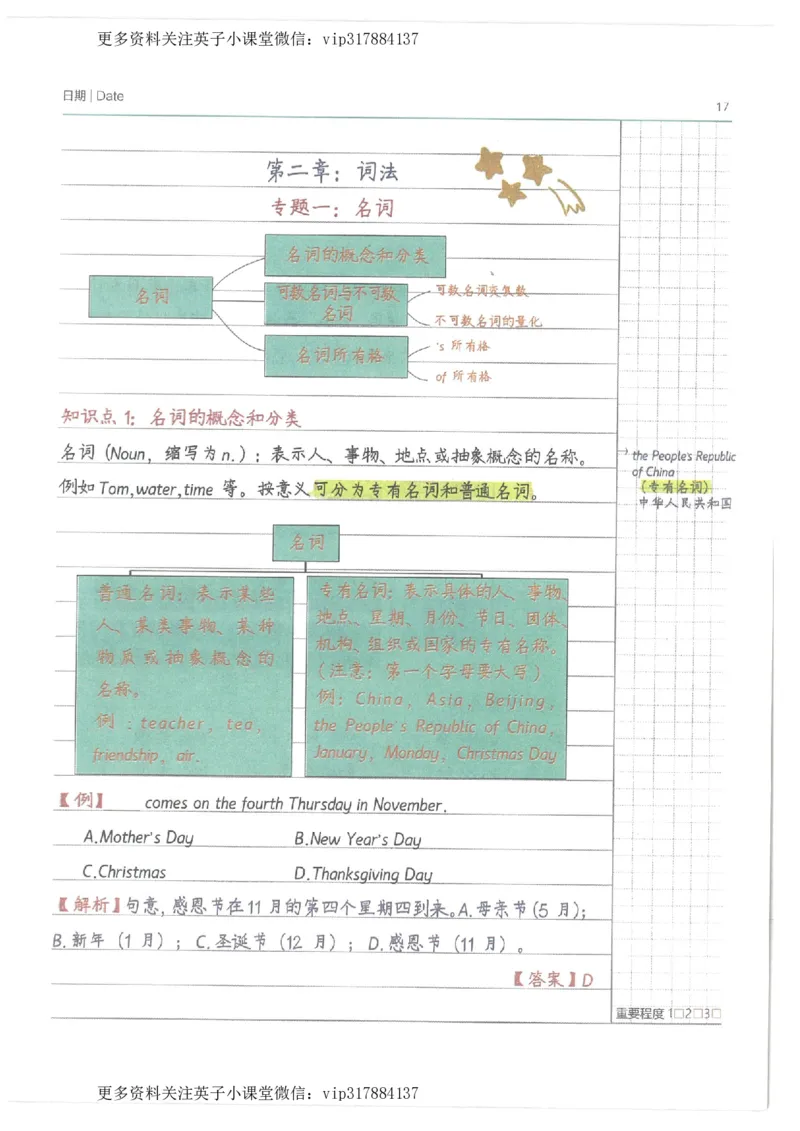 更多资料关注英子小课堂微信：vip317884137
日期 | Date
17
第二章：词法
专题一：名词
名词
名词的概念和分类
可数名词与不可数
名词
可数名词变复数
不可数名词的量化
名词所有格
's 所有格
of 所有格
知识点 1：名词的概念和分类
名词（Noun，缩写为 n.）：表示人、事物、地点或抽象概念的名称。
例如 Tom,water,time 等。按意义可分为专有名词和普通名词。
the People's Republic
of China
（专有名词）
中华人民共和国
名词
普通名词：表示某些
人、某类事物、某种
物质或抽象概念的
名称。
例：teacher，tea，
friendship，air.
专有名词：表示具体的人、事物、
地点、星期、月份、节日、团体、
机构、组织或国家的专有名称。
（注意：第一个字母要大写）
例：China，Asia，Beijing，
the People's Republic of China，
January，Monday，Christmas Day
【例】____ comes on the fourth Thursday in November.
A.Mother's Day B.New Year's Day
C.Christmas D.Thanksgiving Day
【解析】句意，感恩节在11月的第四个星期四到来。A.母亲节（5 月）；
B.新年（1 月）；C.圣诞节（12 月）；D.感恩节（11 月）。
【答案】D
重要程度 1□2□3□
更多资料关注英子小课堂微信：vip317884137